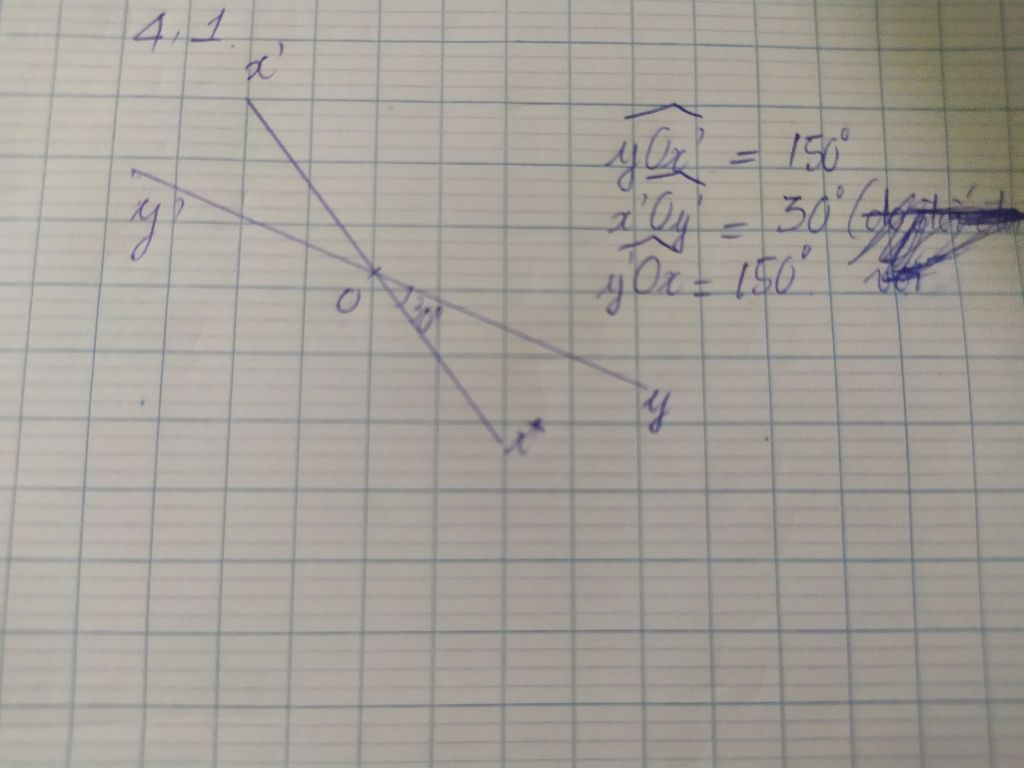 4.1.
x'
y'
O
30°
y
x
yOx' = 150°
x'Oy' = 30° (
y'Ox = 150°